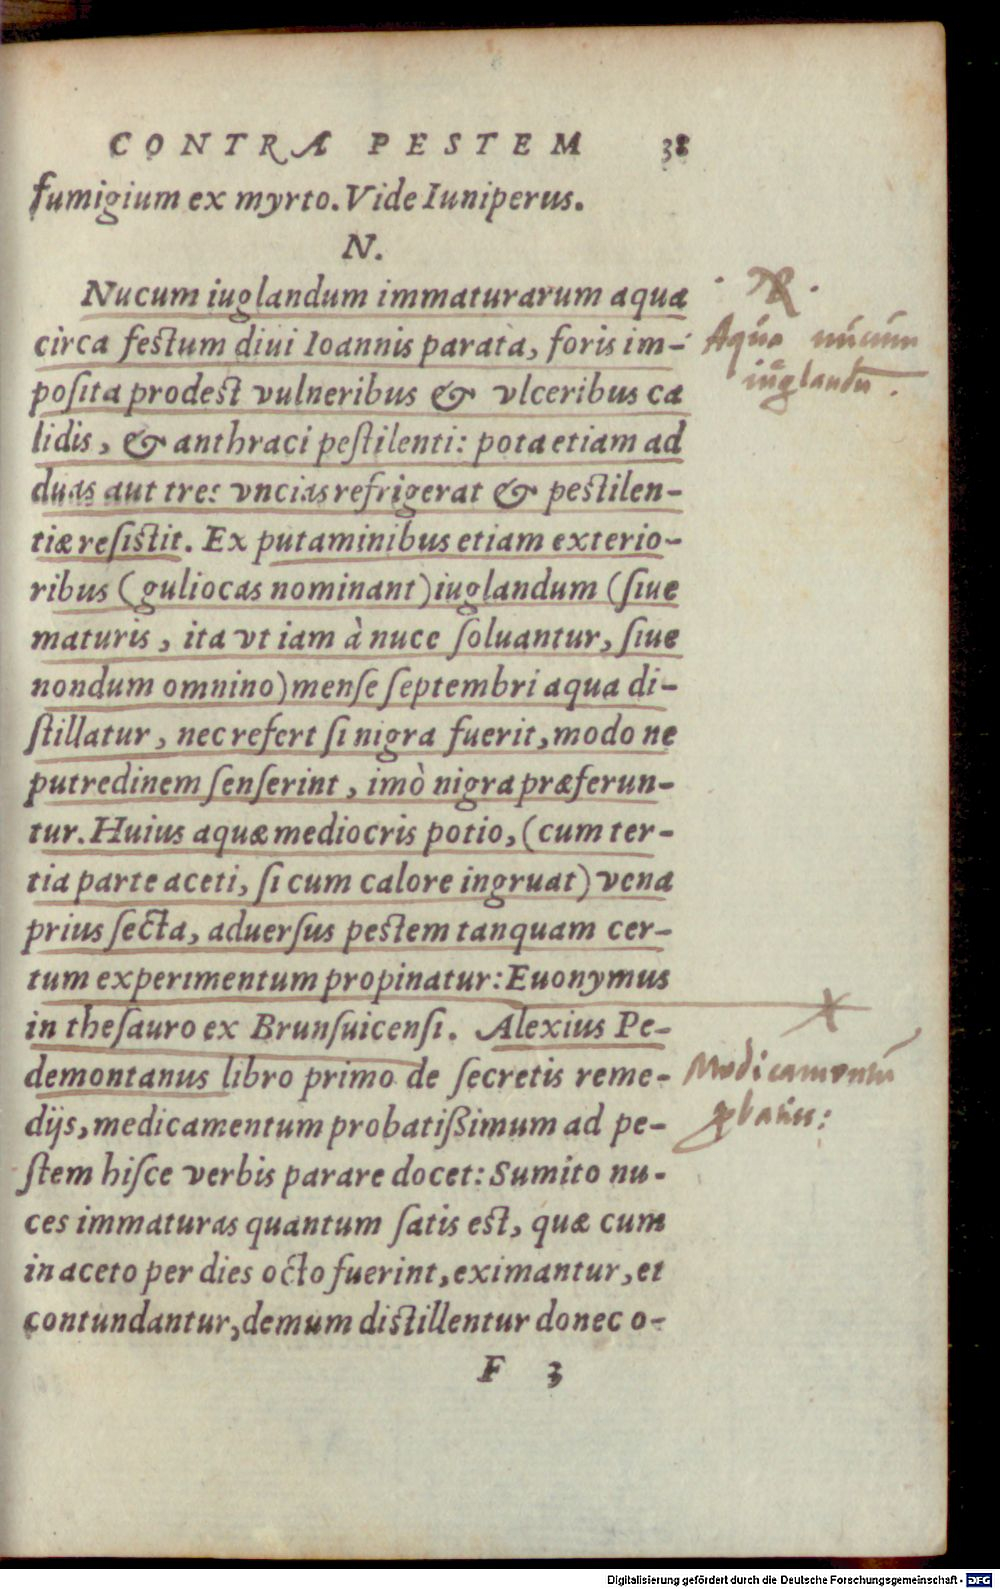 CONTRA PESTEM 38
fumigium ex myrto. Vide Iuniperus.
N.
Nucum iuglandum immaturarum aqua
circa festum diui Ioannis parata, foris im-
posita prodest vulneribus & vlceribus ca
lidis, & anthraci pestilenti: pota etiam ad
duas aut tres vncias refrigerat & pestilen-
tiæ resistit. Ex putaminibus etiam exterio-
ribus (guliocas nominant) iuglandum (siue
maturis, ita vt iam à nuce soluantur, siue
nondum omnino) mense septembri aqua di-
stillatur, nec refert si nigra fuerit, modo ne
putredinem senserint, imò nigra præferun-
tur. Huius aquæ mediocris potio, (cum ter-
tia parte aceti, si cum calore ingruat) vena
prius secta, aduersus pestem tanquam cer-
tum experimentum propinatur: Euonymus
in thesauro ex Brunsuicensi. Alexius Pe-
demontanus libro primo de secretis reme-
dijs, medicamentum probatißimum ad pe-
stem hisce verbis parare docet: Sumito nu-
ces immaturas quantum satis est, quæ cum
in aceto per dies octo fuerint, eximantur, et
contundantur, demum distillentur donec o-
F 3
Aqua nucum
iuglandū.
Medicamentū
ꝓbatū:
Digitalisierung gefördert durch die Deutsche Forschungsgemeinschaft - DFG